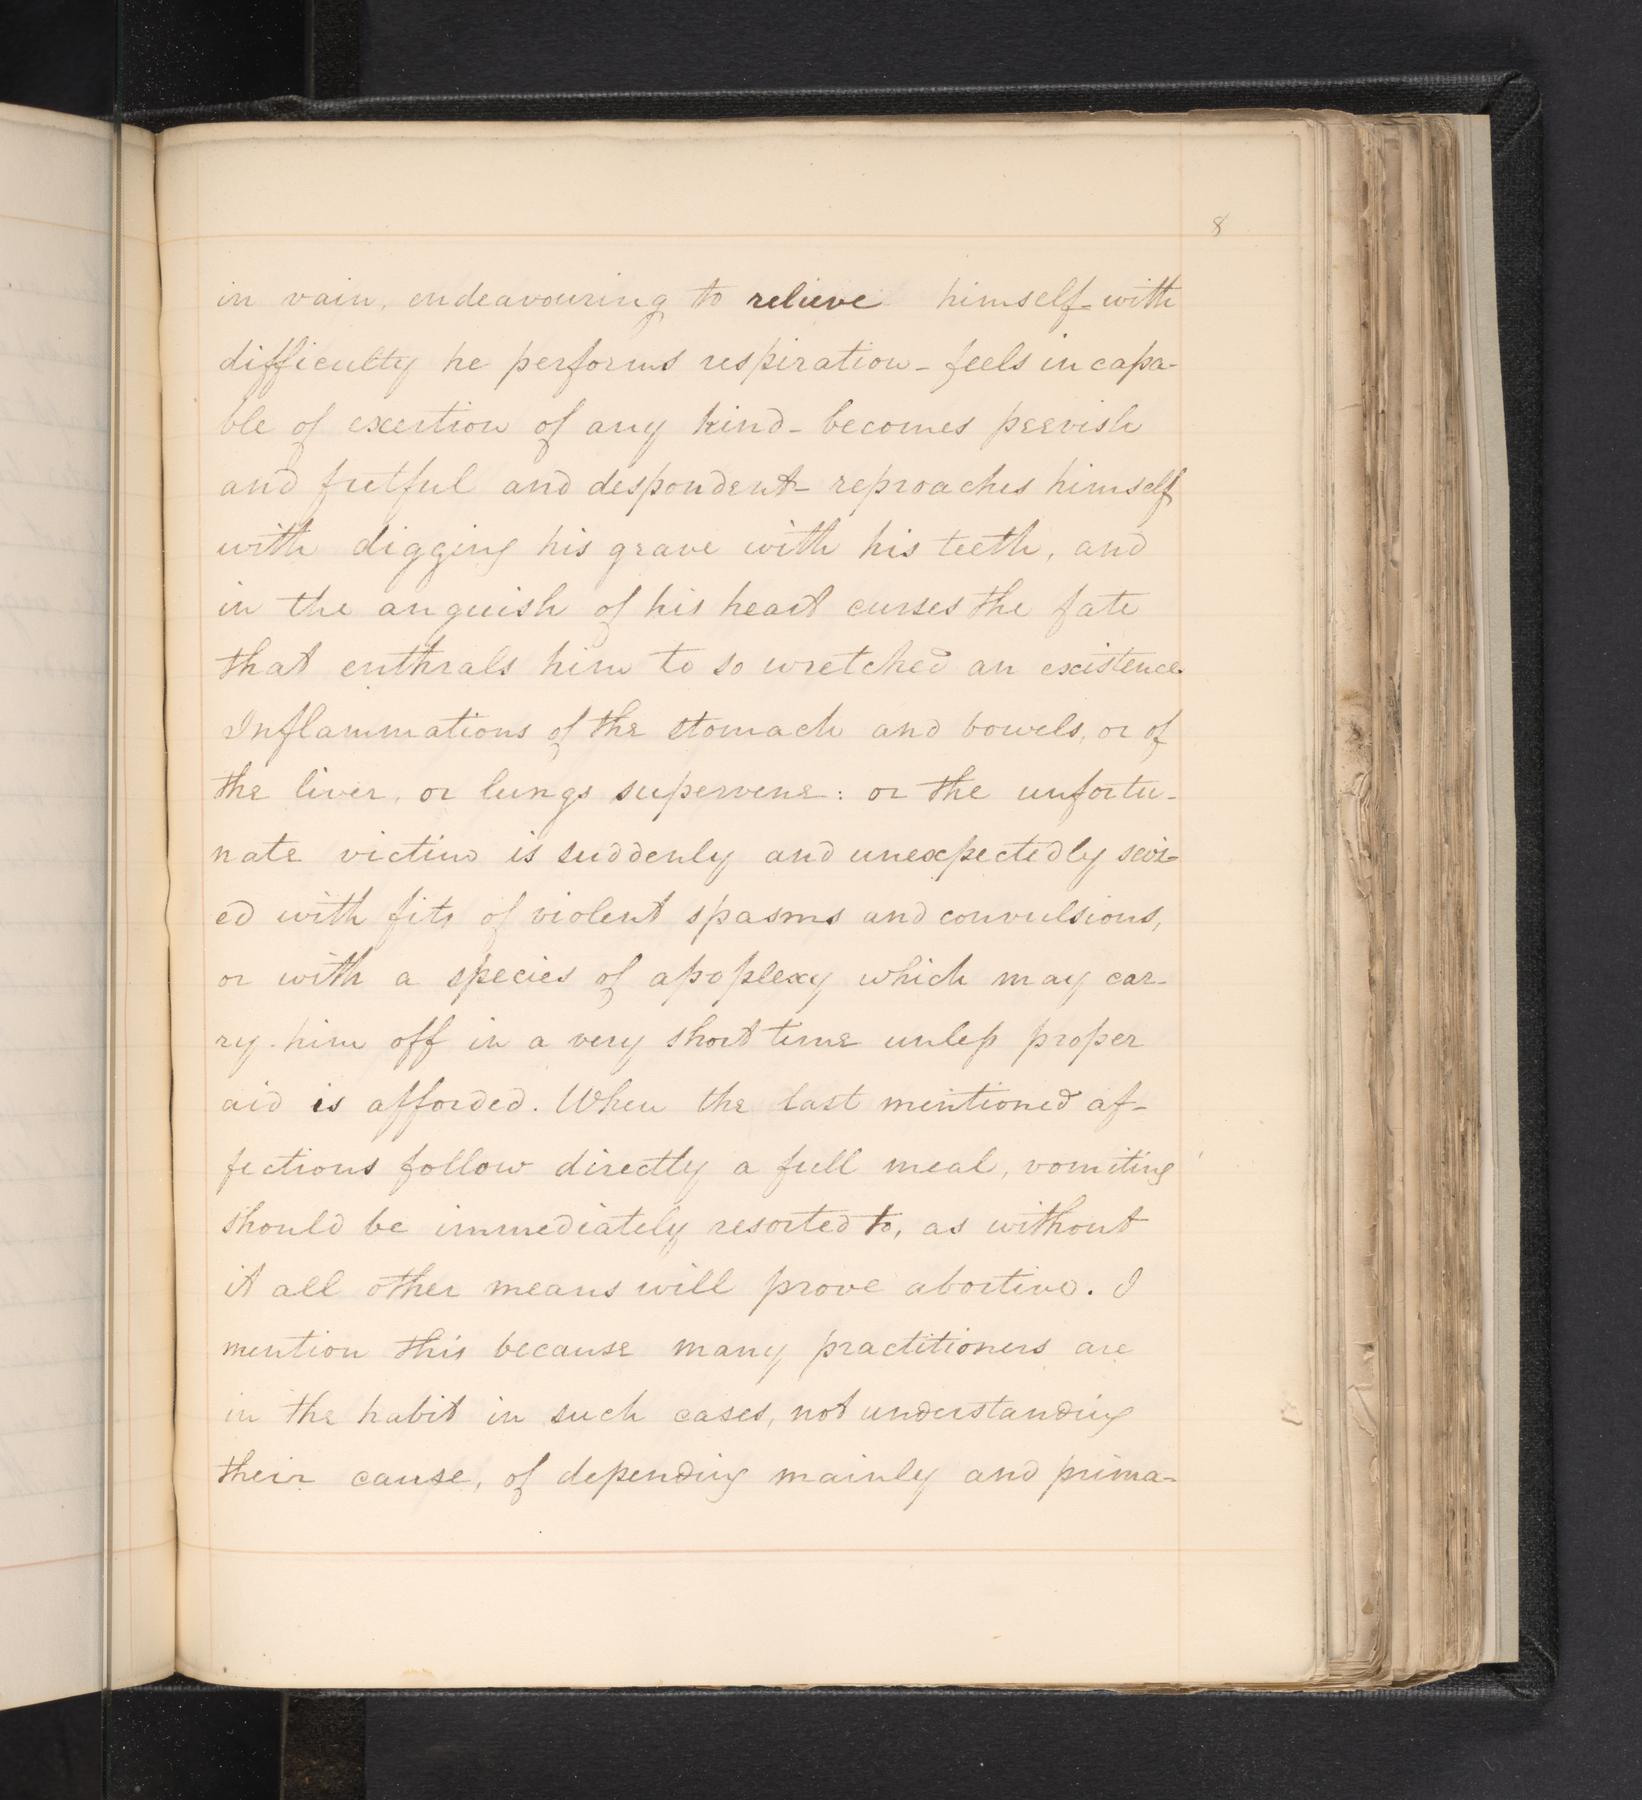 8
in vain, endeavouring to relieve himself - with
difficulty he performs respiration - feels incapa-
ble of exertion of any kind - becomes peevish
and fretful and despondent - reproaches himself
with digging his grave with his teeth, and
in the anguish of his heart curses the fate
that enthrals him to so wretched an existence.
Inflammations of the stomach and bowels, or of
the liver, or lungs supervene: or the unfortu-
nate victim is suddenly and unexpectedly seiz-
ed with fits of violent spasms and convulsions,
or with a species of apoplexy which may car-
ry him off in a very short time unless proper
aid is afforded. When the last mentioned af-
fections follow directly a full meal, vomiting
should be immediately resorted to, as without
it all other means will prove abortive. I
mention this because many practitioners are
in the habit in such cases, not understanding
their cause, of depending mainly and prima-